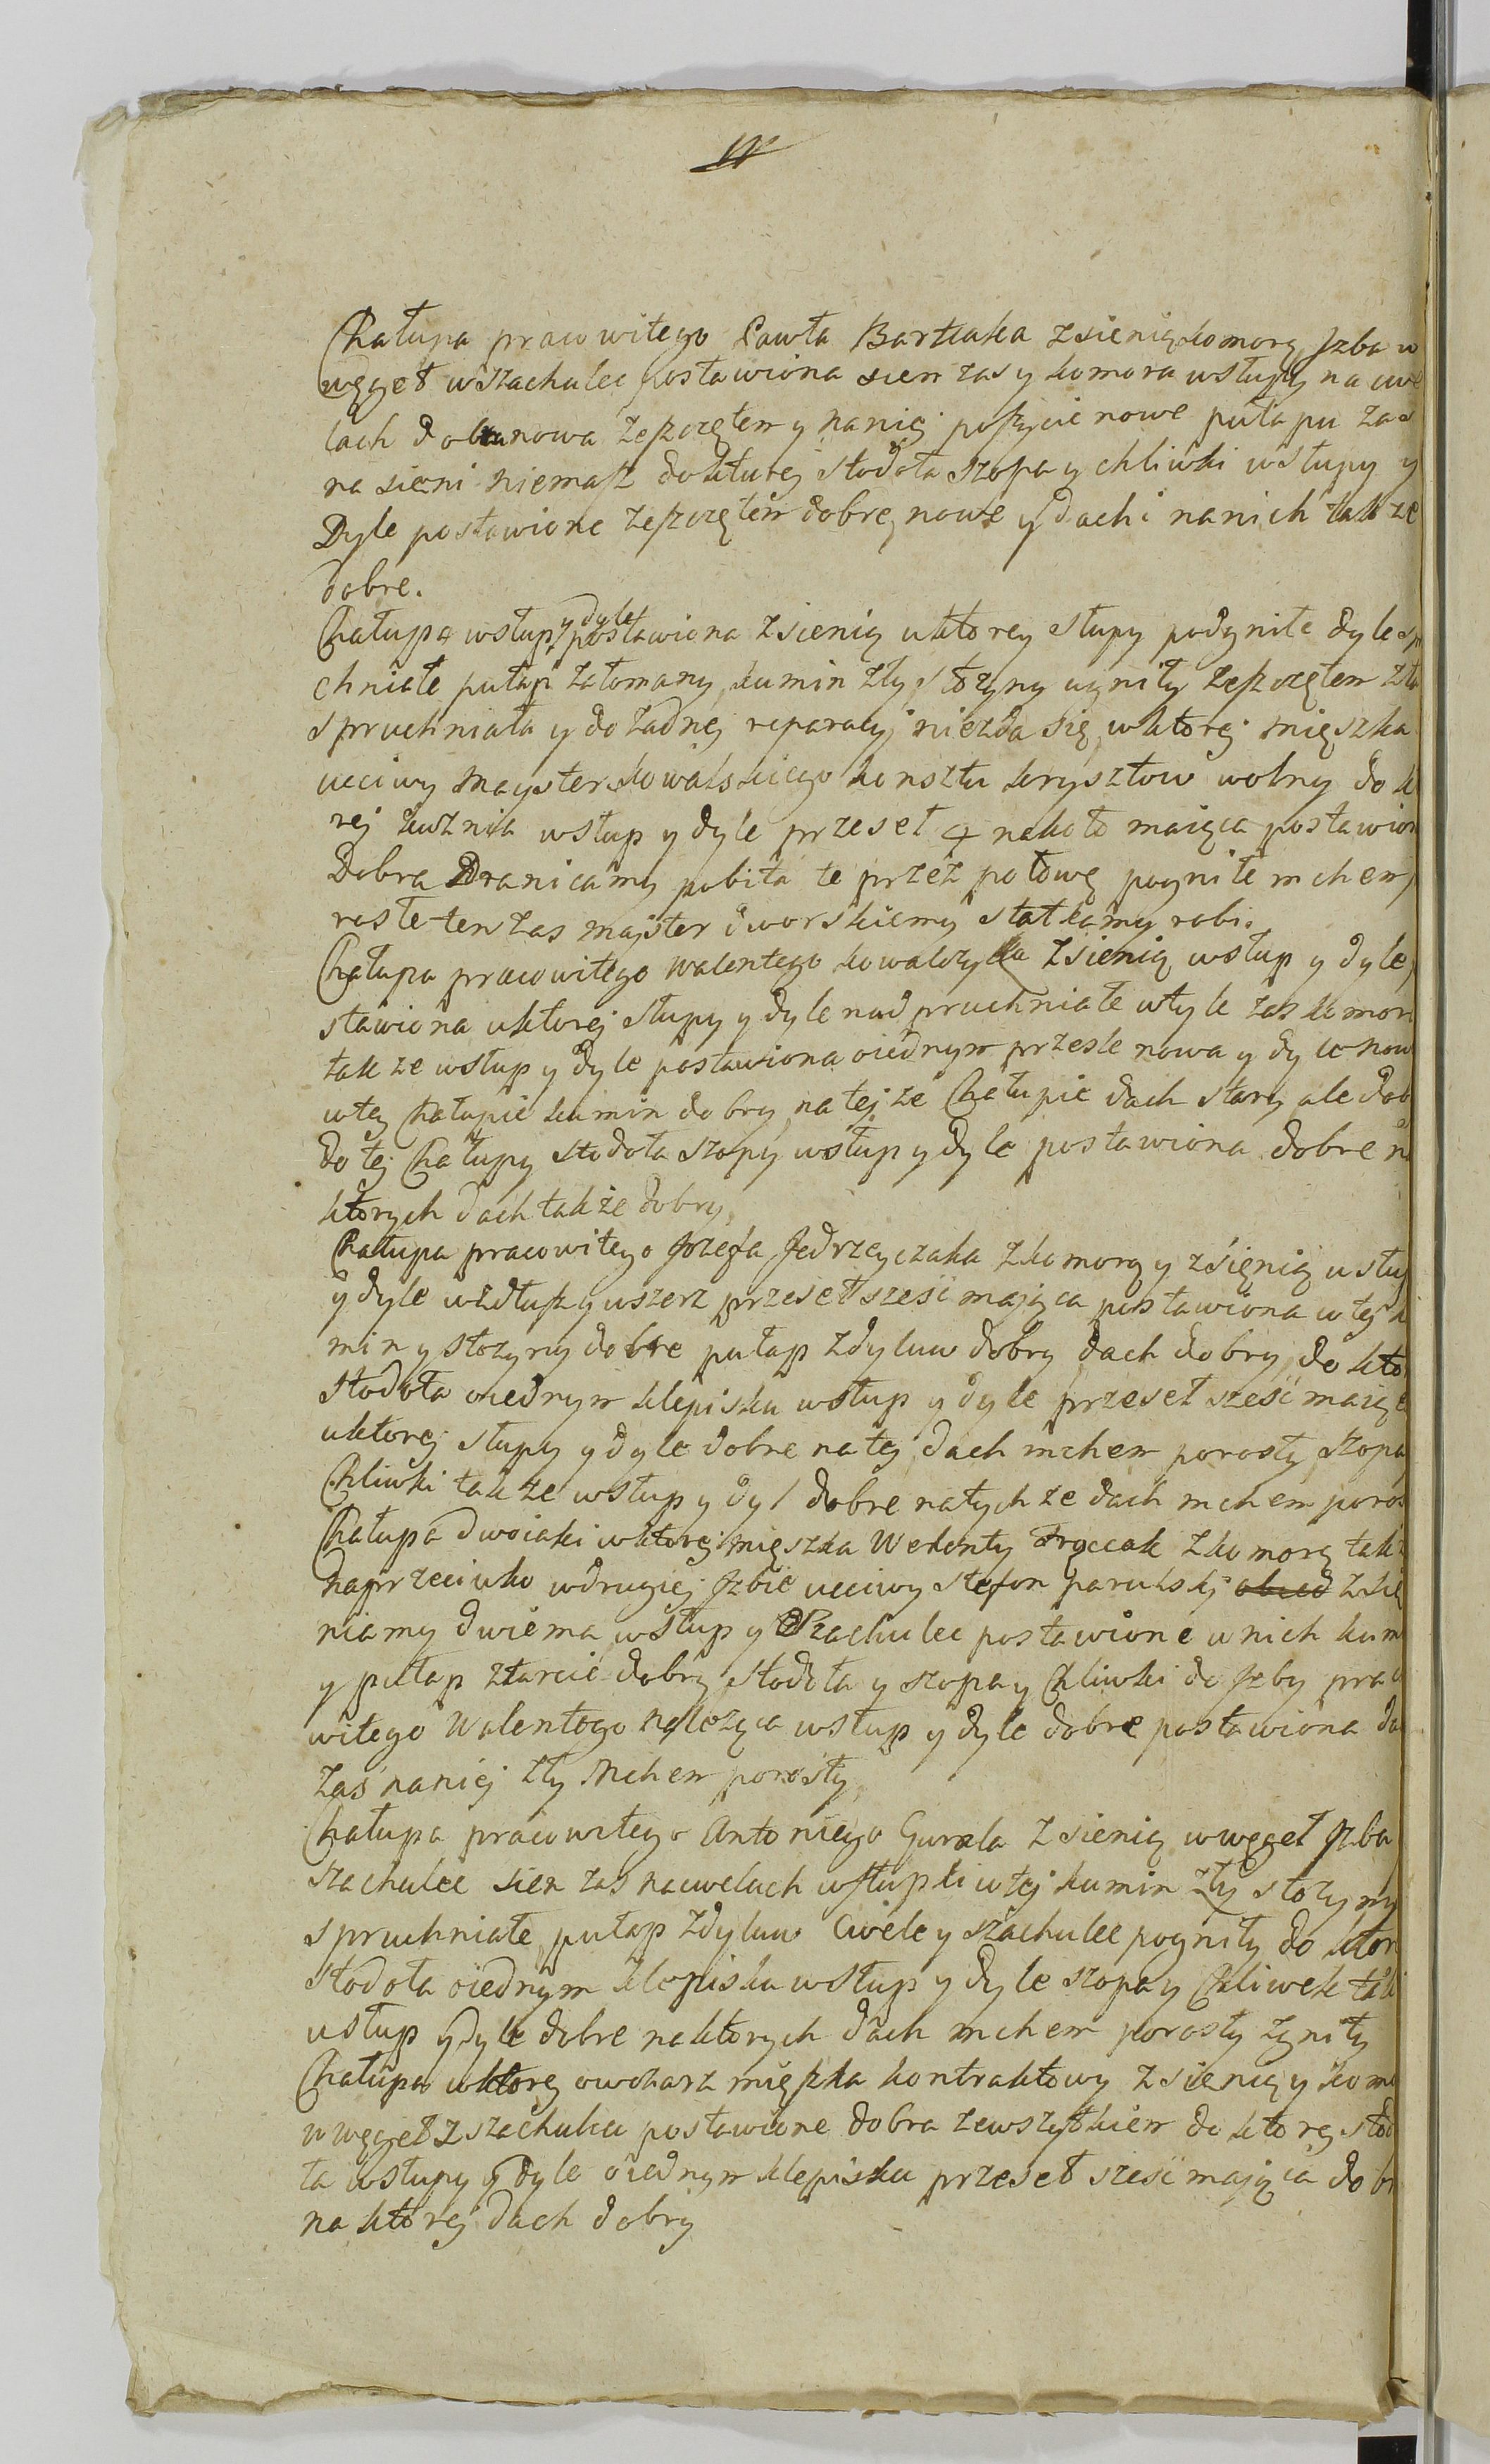 Chałupa pracowitego Pawła Bartlaka z sienią komorą Jzba w
węgeł w szachulec postawiona sien zas y komora w słupy na cwe
lach dobra nowa zeszczętem y na niej poszycie nowe pułapu zas
na sieni niemasz do kturej stodoła szopa y chliwki w słupy y
Dyle postawione zeszczętem dobre nowe y dachi na nich takze
dobre.
Chałupa w słup y dyle postawiona z sienią u ktorey słupy podgniłe dyle sp
chniałe pułap załomany kumin zły stozyny ugniły zeszczętem zła
spruchniała y do zadnej reparacyj niezda się w ktorej mięszka
uciwy Mayster kowalskiego konsztu krysztow wolny do k
rej kuznia w słup y dyle przeseł 4 nakoło maiąca postawion
Dobra Dranicamy pobita te przez połowę pogniłe mchem
rosłe ten zas majster dworskiemy statkamy robi.
Chałupa pracowitego Walentego kowalczyka z sienią w słup y dyle
stawiona u ktorej słupy y dyle nadpruchniałe w tyle zas komor
takze w słup y dyle postawiona o iednym przesle nowa y dyle now
w tey Chałupie kumin dobry na tejze Chałupie dach stary ale dob
do tej Chałupy stodoła szopy w słup y dyle postawiona dobre n
ktorych dach także dobry,
Chałupa pracowitego Jozefa Jędrzeyczaka z komorą y z sienią w słup
y dyle w zdłusz y w szerz przeseł sześć mająca postawiona w tej k
min y stozyny dobre pułap z dyluw dobry dach dobry, do kto
stodoła o iednym klepisku w słup y dyle przeseł sześć maiąca
u ktorej słupy y dyle dobre na tej dach mchem porosły szopa
Chliwki takze w słup y dyl dobre na tychze dach mchem poros
Chałupa dwoiaki w ktorej mięszka Welenty Frąccak z komorą takz
naprzeciwko w drugiej Jzbie uciwy stefon parulskj z sie
niamy dwiema w słup y Szachulec postawione u nich kum
y pułap z tarcic dobry stodoła y szopa y Chliwki do Jzby prac
witego Walentego naleząca w słup y dyle dobre postawiona da
zaś na niej zły Mchem porosły,
Chałupa pracowitego Antoniego Gurala z sienią w węgeł Jzba
szachulec sien zas na cwelach w słupki w tej kumin zły stozyny
spruchniałe, pułap z dyluw Cwele y szachulec pogniły do ktor
stodoła o iednym klepisku w słup y dyle szopa y Chliwek tak
w słup y dyle dobre na ktorych dach mchem porosły zgniły
Chałupa w ktorej owcharz mięszka kontraktowy z sienią y kom
w węgeł z szachulca postawione dobra zewszytkiem do ktorej stod
ła w słupy y Dyle o iednym klepisku przeseł sześć mająca dobr
na ktorej dach dobry